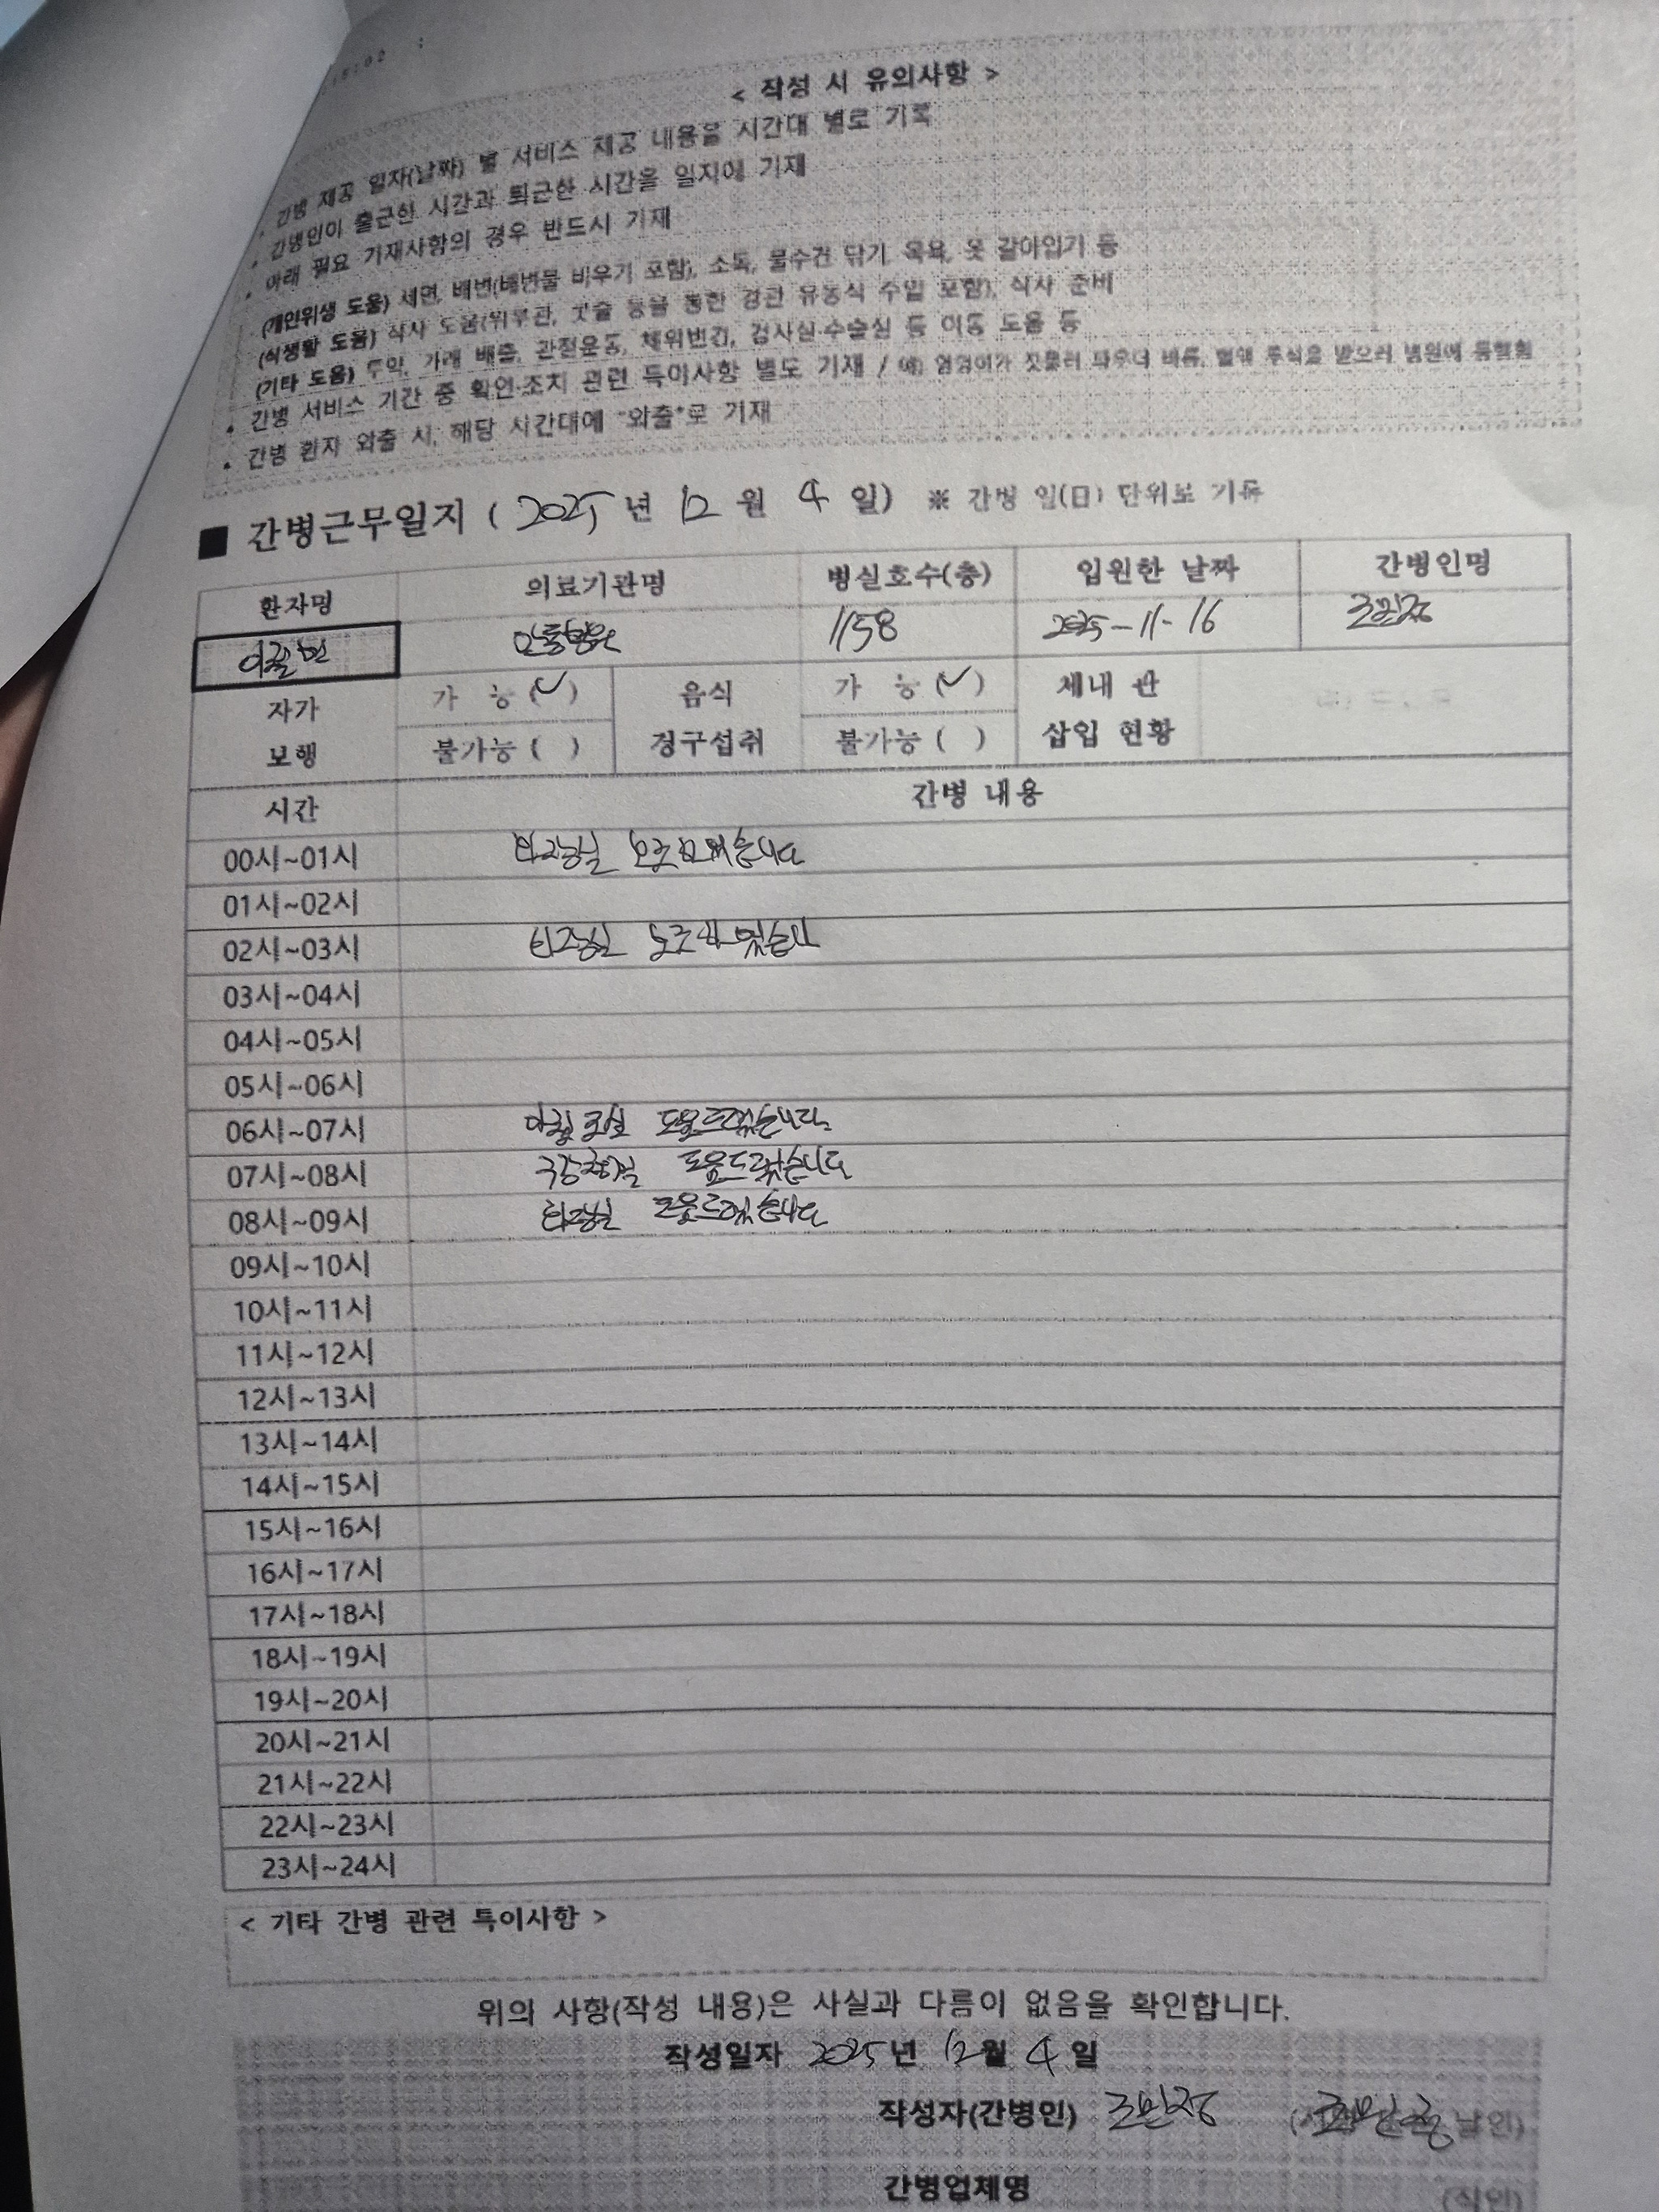 < 작성 시 유의사항 >
• 간병 제공 일자(날짜) 별 서비스 제공 내용을 시간대 별로 기록
• 간병인이 출근한 시간과 퇴근한 시간을 일지에 기재
• 아래 필요 기재사항의 경우 반드시 기재
(개인위생 도움) 세면, 배변(배변물 비우기 포함), 소독, 물수건 닦기, 목욕, 옷 갈아입기 등
(식생활 도움) 식사 도움(위루관, 콧줄 등을 통한 경관 유동식 주입 포함), 식사 준비
(기타 도움) 투약, 가래 배출, 관절운동, 체위변경, 검사실·수술실 등 이동 도움 등
• 간병 서비스 기간 중 확인·조치 관련 특이사항 별도 기재 / 예) 엉덩이가 짓물러 파우더 바름, 혈액 투석을 받으러 병원에 동행함
• 간병 환자 외출 시, 해당 시간대에 "외출"로 기재
■ 간병근무일지 ( 2025 년 12 월 4 일) ※ 간병 일(日) 단위로 기록
환자명 의료기관명 병실호수(층) 입원한 날짜 간병인명
1158 2025-11-16
자가 보행 가 능 (✓) 불가능 ( ) 음식 경구섭취 가 능 (✓) 불가능 ( ) 체내 관 삽입 현황
시간 간병 내용
00시~01시 화장실
01시~02시
02시~03시 화장실
03시~04시
04시~05시
05시~06시
06시~07시 아침 도움드렸습니다
07시~08시 도움드렸습니다
08시~09시 화장실 도움드렸습니다
09시~10시
10시~11시
11시~12시
12시~13시
13시~14시
14시~15시
15시~16시
16시~17시
17시~18시
18시~19시
19시~20시
20시~21시
21시~22시
22시~23시
23시~24시
< 기타 간병 관련 특이사항 >
위의 사항(작성 내용)은 사실과 다름이 없음을 확인합니다.
작성일자 2025 년 12 월 4 일
작성자(간병인) 날인)
간병업체명 (직인)